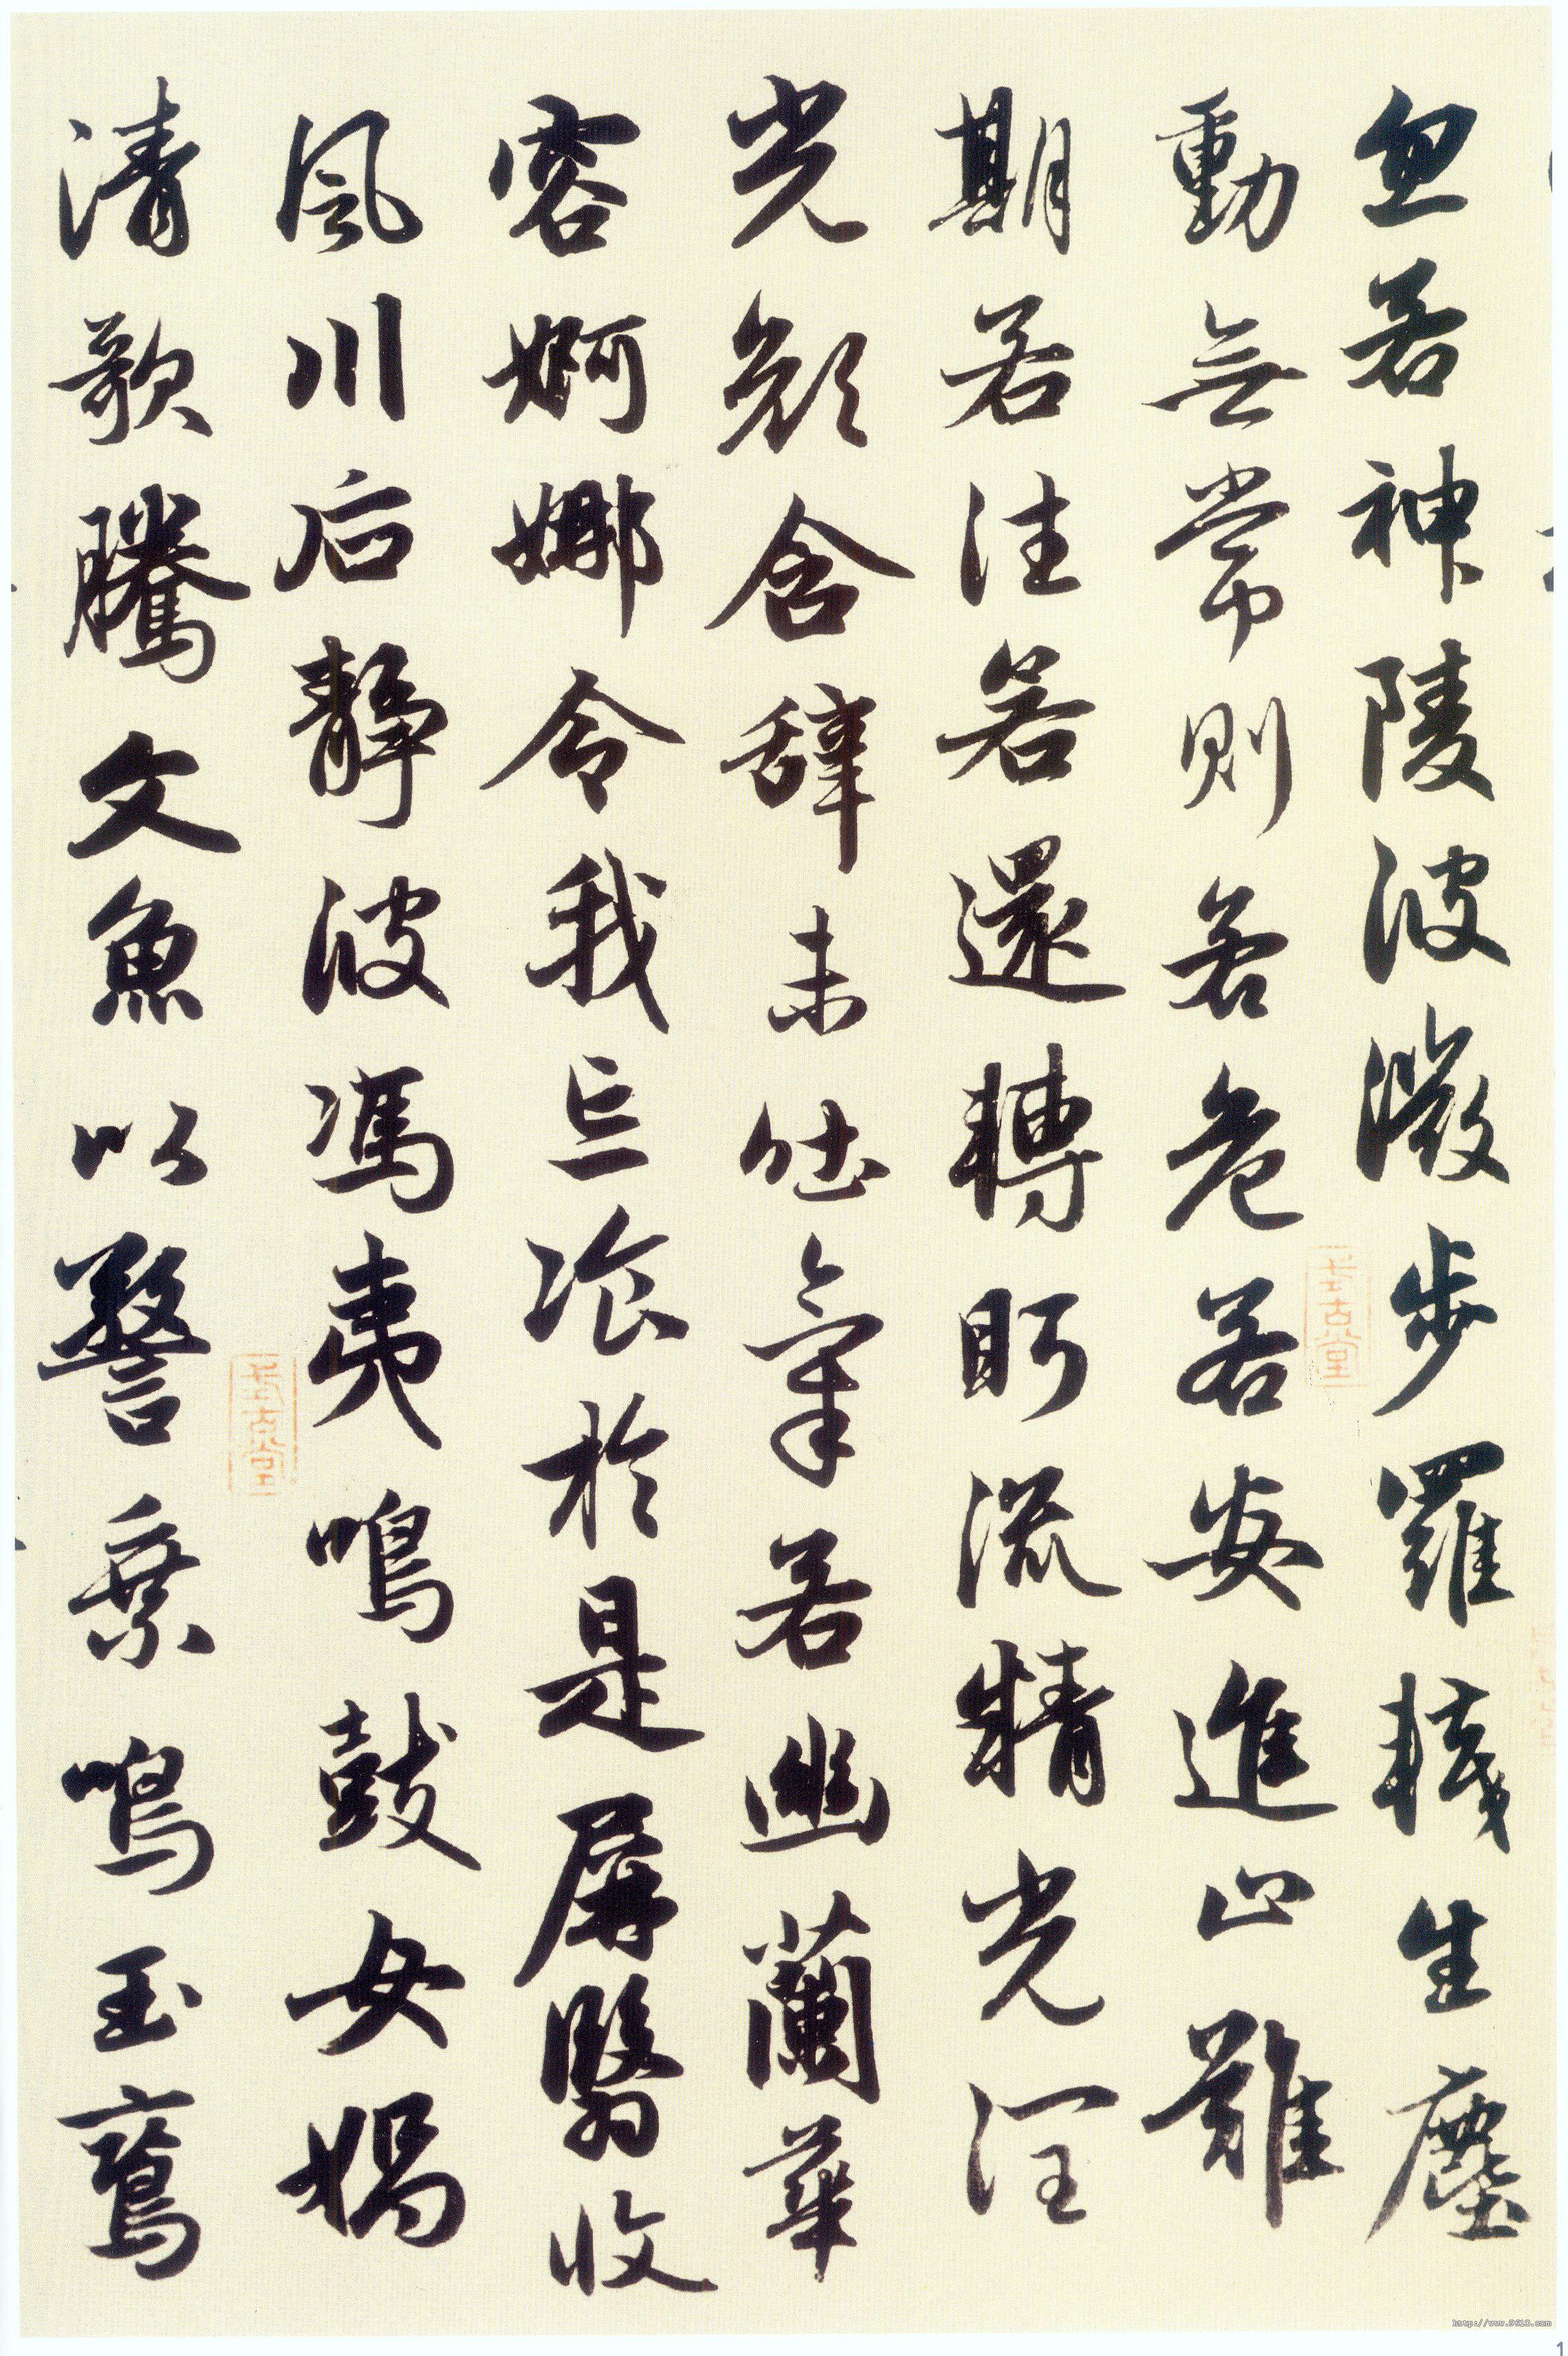 忽若神陵波微步羅韈生塵
動無常則若危若安進止難
期若往若還轉眄流精光潤
光顏含辞未吐氣若幽蘭華
容婀娜令我忘飡於是屏翳收
風川后靜波馮夷鳴鼓女媧
清歌騰文魚以警乗鳴玉鸞
http://www.9610.com
1